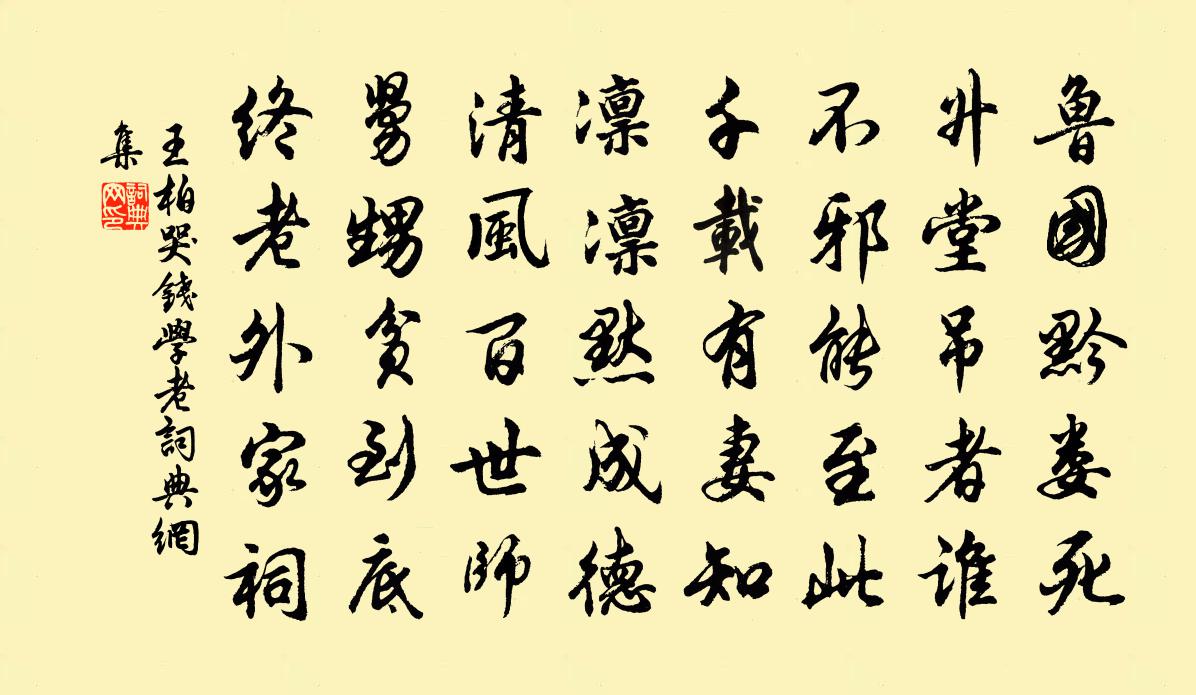 魯國黔婁死
升堂吊者誰
不邪能至此
千載有妻知
凛凛黙成德
清風百世師
舅甥貧到底
終老外家祠
王柏哭錢學老詞典網
集
詞典網印